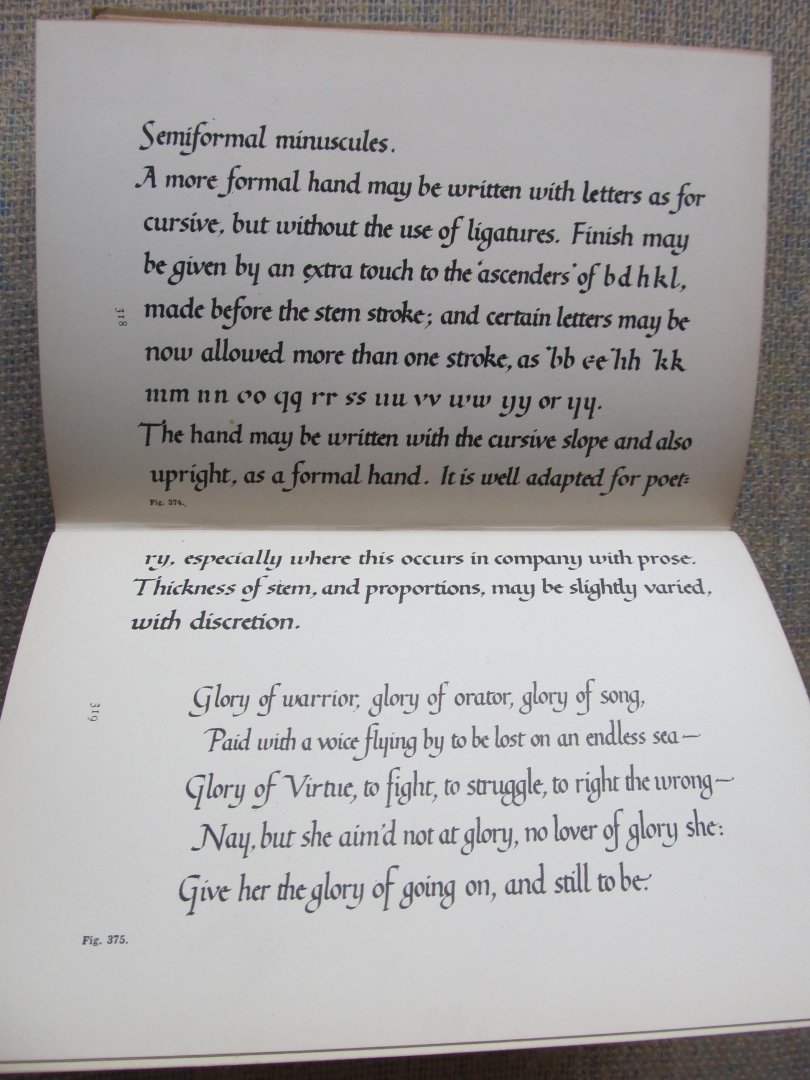 Semiformal minuscules.
A more formal hand may be written with letters as for
cursive, but without the use of ligatures. Finish may
be given by an extra touch to the 'ascenders' of b d h k l,
318
made before the stem stroke; and certain letters may be
now allowed more than one stroke, as bb ee hh kk
mm nn oo qq rr ss uu vv ww yy or yy.
The hand may be written with the cursive slope and also
upright, as a formal hand. It is well adapted for poet=
Fig. 374.
ry, especially where this occurs in company with prose.
Thickness of stem, and proportions, may be slightly varied,
with discretion.
319
Glory of warrior, glory of orator, glory of song,
Paid with a voice flying by to be lost on an endless sea—
Glory of Virtue, to fight, to struggle, to right the wrong—
Nay, but she aim'd not at glory, no lover of glory she:
Give her the glory of going on, and still to be.
Fig. 375.